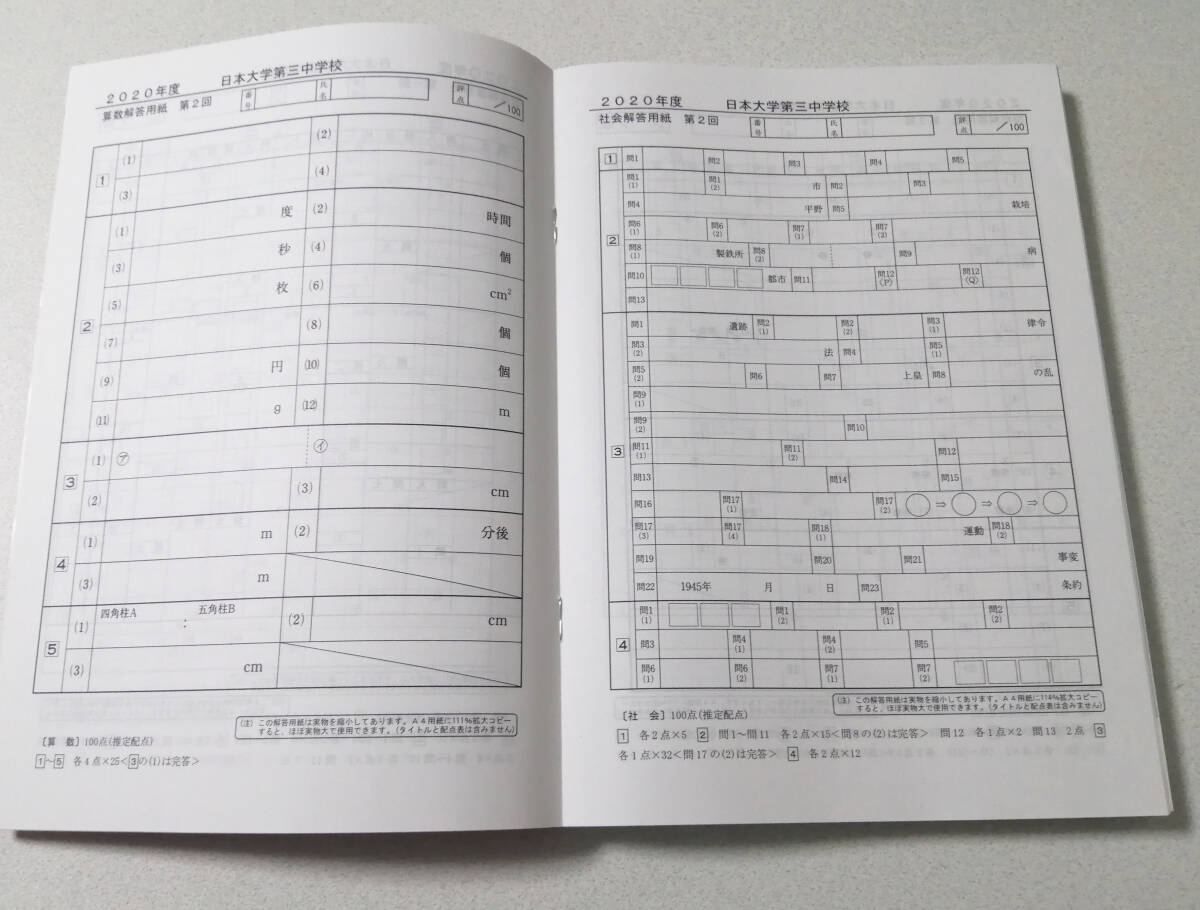 2020年度　日本大学第三中学校
算数解答用紙　第2回　番号　氏名　評点　／100
1　(1)　(2)
(3)　(4)
2　(1)　度　(2)　時間
(3)　秒　(4)　個
(5)　枚　(6)　cm²
(7)　(8)　個
(9)　円　(10)　個
(11)　g　(12)　m
3　(1)　㋐　㋑
(2)　(3)　cm
4　(1)　m　(2)　分後
(3)　m
5　(1)　四角柱A　：　五角柱B　(2)　cm
(3)　cm
（注）この解答用紙は実物を縮小してあります。A4用紙に111％拡大コピー
すると、ほぼ実物大で使用できます。（タイトルと配点表は含みません）
〔算　数〕100点（推定配点）
1～5　各4点×25＜3の(1)は完答＞
2020年度　日本大学第三中学校
社会解答用紙　第2回　番号　氏名　評点　／100
1　問1　問2　問3　問4　問5
2　問1(1)　問1(2)　市　問2　問3
問4　平野　問5　栽培
問6(1)　問6(2)　問7(1)　問7(2)
問8(1)　製鉄所　問8(2)　問9　病
問10　都市　問11　問12〈P〉　問12〈Q〉
問13
3　問1　遺跡　問2(1)　問2(2)　問3(1)　律令
問3(2)　法　問4　問5(1)
問5(2)　問6　問7　上皇　問8　の乱
問9(1)
問9(2)　問10
問11(1)　問11(2)　問12
問13　問14　問15
問16　問17(1)　問17(2)　⇒　⇒　⇒
問17(3)　問17(4)　問18(1)　運動　問18(2)
問19　問20　問21　事変
問22　1945年　月　日　問23　条約
4　問1(1)　問1(2)　問2(1)　問2(2)
問3　問4(1)　問4(2)　問5
問6(1)　問6(2)　問7(1)　問7(2)
（注）この解答用紙は実物を縮小してあります。A4用紙に114％拡大コピー
すると、ほぼ実物大で使用できます。（タイトルと配点表は含みません）
〔社　会〕100点（推定配点）
1　各2点×5　2　問1～問11　各2点×15＜問8の(2)は完答＞　問12　各1点×2　問13　2点　3
各1点×32＜問17の(2)は完答＞　4　各2点×12